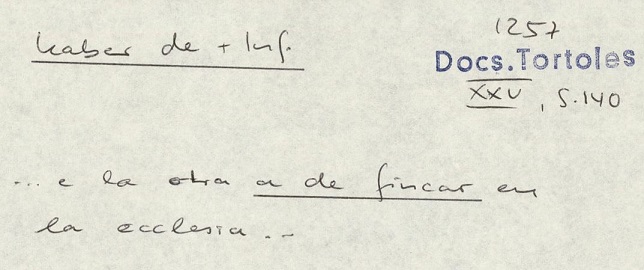 haber de + Inf.
1257
Docs.Tortoles
XXV, S.140
... e la otra a de fincar en
la ecclesia ...